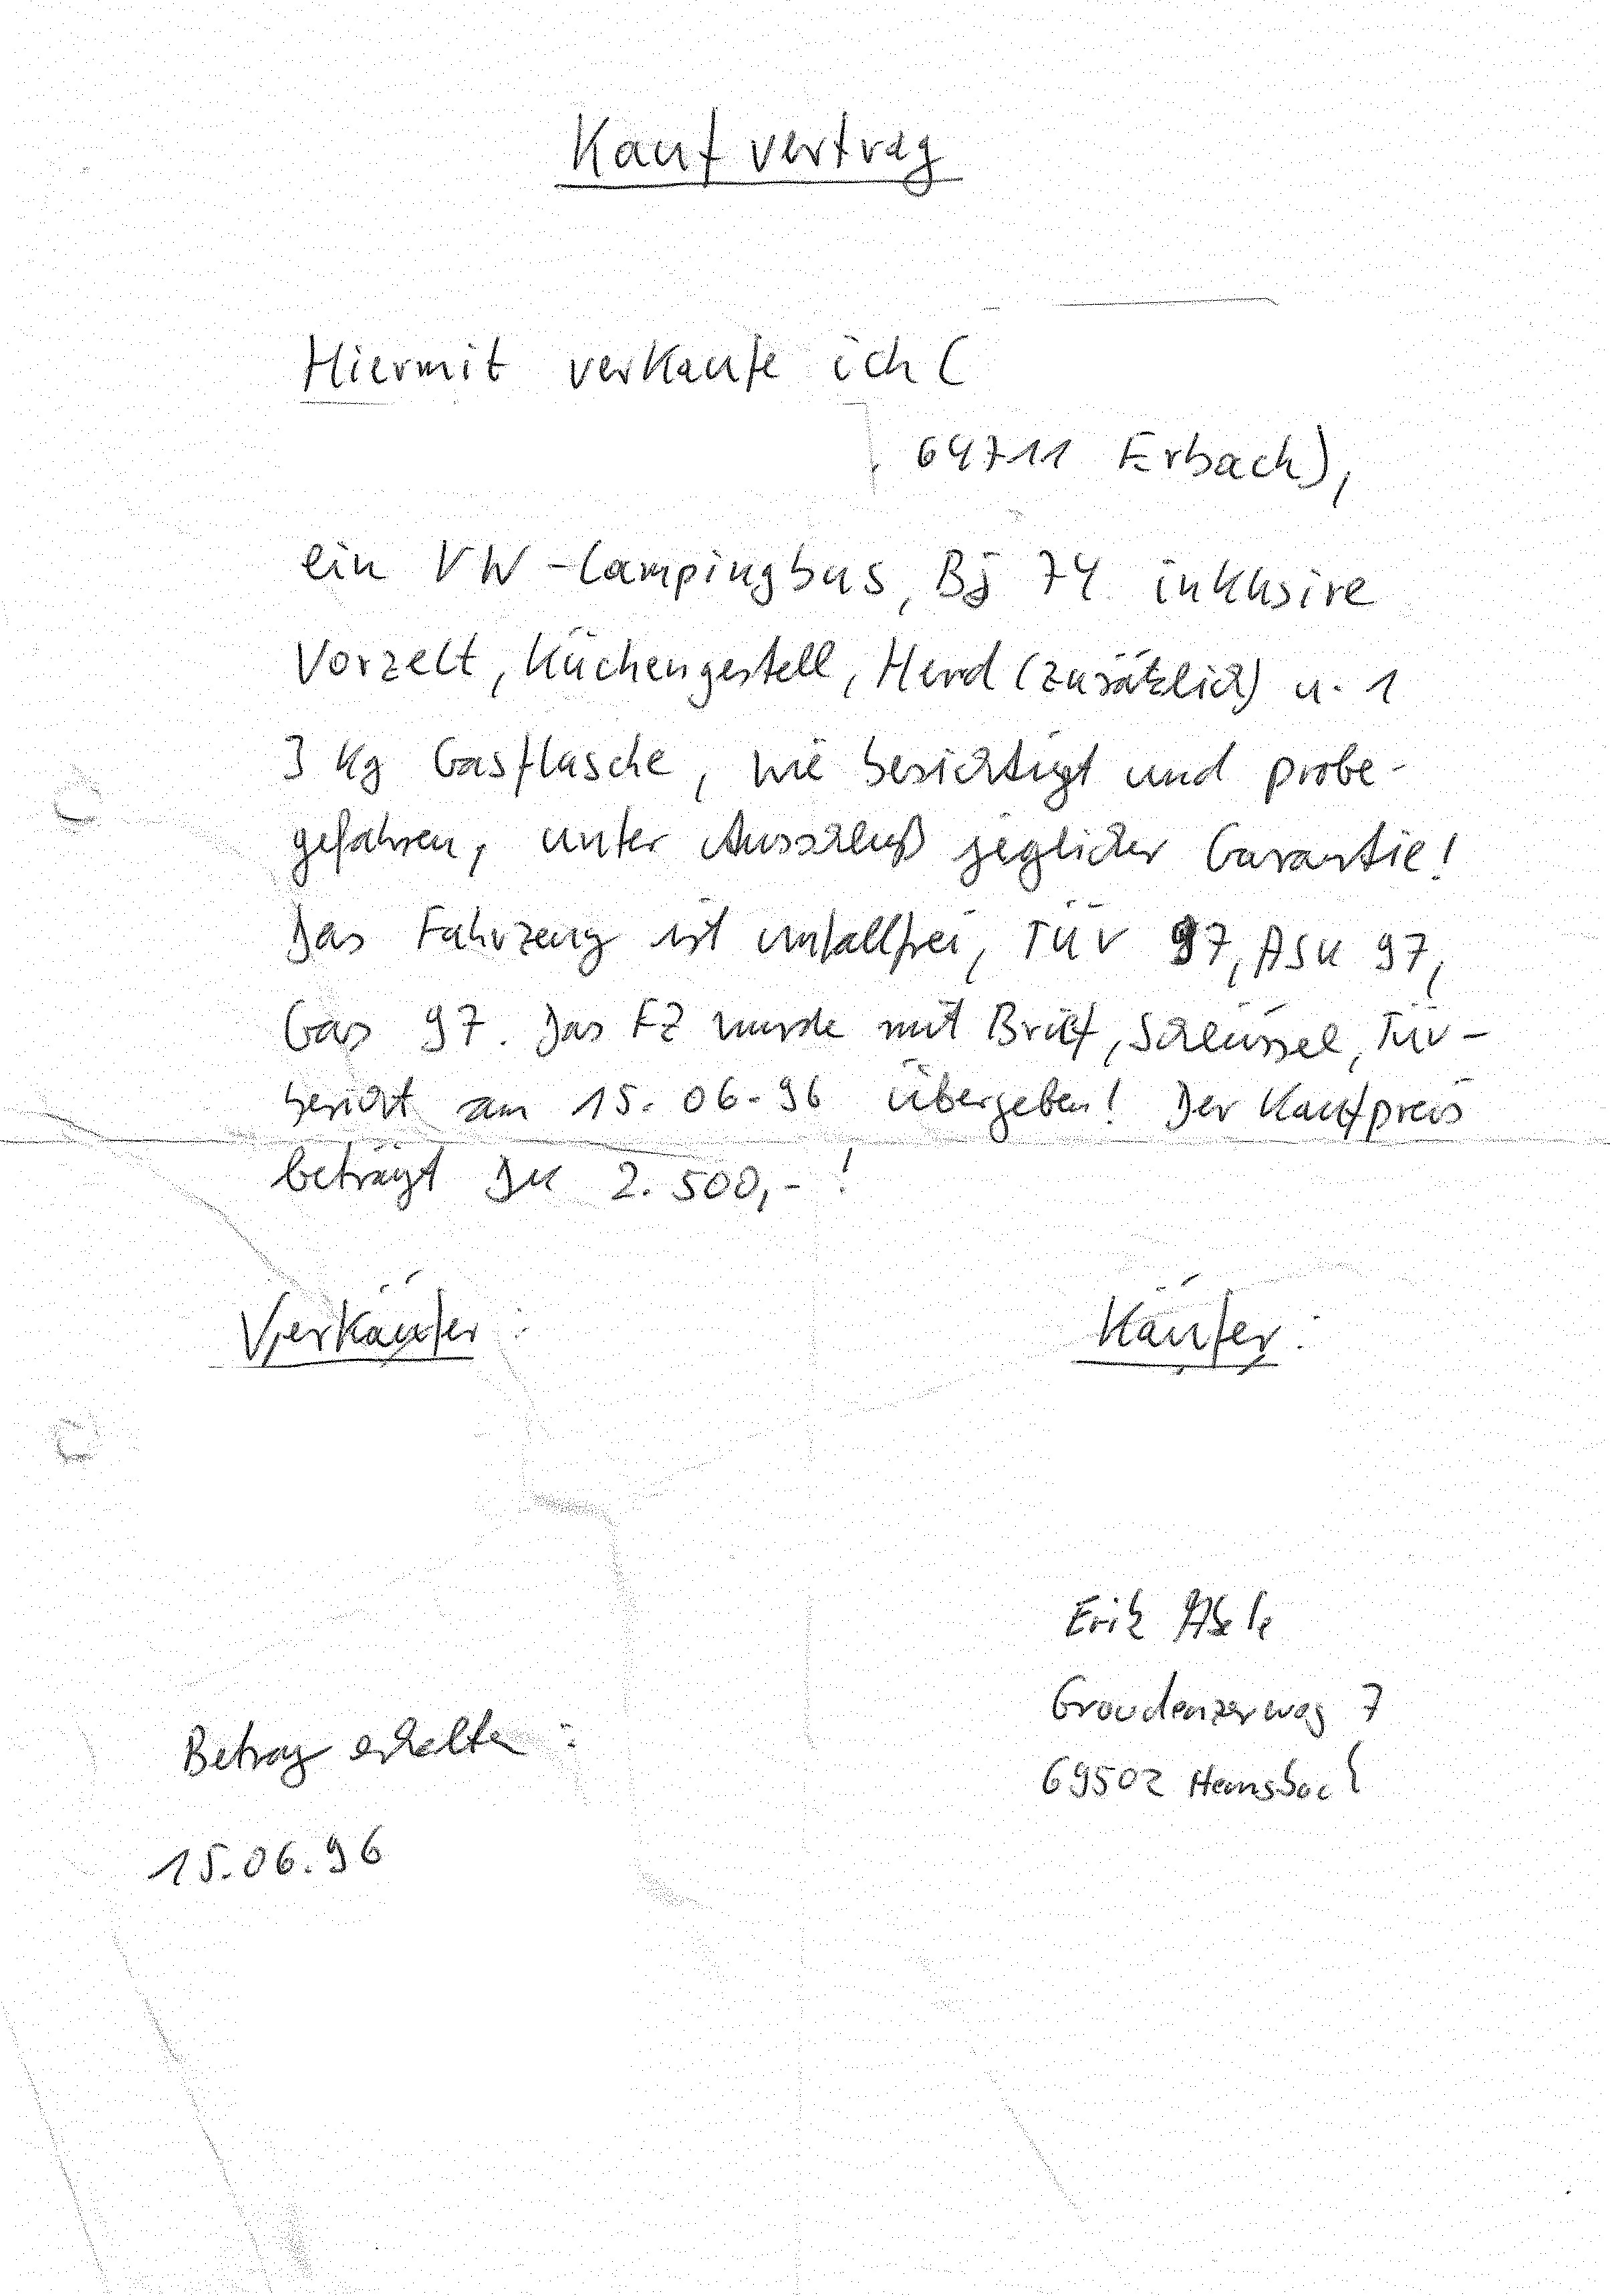 Kaufvertrag
Hiermit verkaufe ich (
64711 Erbach),
ein VW-Campingbus, Bj 74 inklusive
Vorzelt, Küchengestell, Herd (zusätzlich) u. 1
3 Kg Gasflasche, wie besichtigt und probe-
gefahren, unter Ausschluß jeglicher Garantie!
Das Fahrzeug ist unfallfrei, TÜV 97, ASU 97,
Gas 97. Das FZ wurde mit Brief, Schlüssel, TÜV-
bericht am 15.06.96 übergeben! Der Kaufpreis
beträgt DM 2.500,- !
Verkäufer:
Käufer:
Erik
Graudenzerweg 7
69502 Hemsbach
Betrag erhalten:
15.06.96